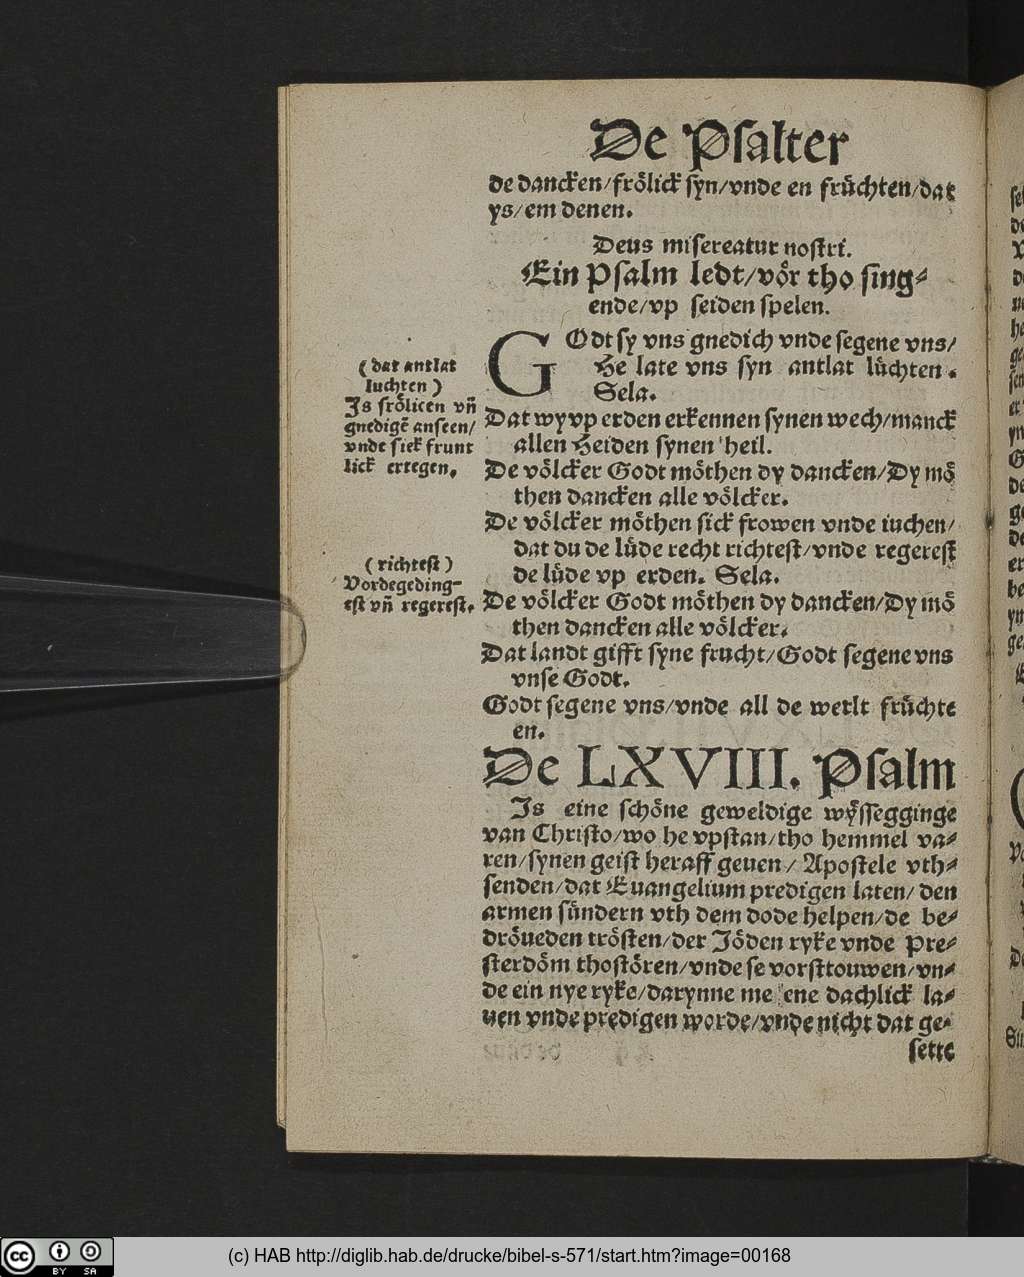 De Psalter
de dancken/frölick syn/vnde en früchten/dat
ys/em denen.
Deus misereatur nostri.
Ein Psalm ledt/vör tho sing⸗
ende/vp seiden spelen.
GOdt sy vns gnedich vnde segene vns/
He late vns syn antlat lüchten.
Sela.
Dat wy vp erden erkennen synen wech/manck
allen Heiden synen heil.
De völcker Godt möthen dy dancken/Dy mö
then dancken alle völcker.
De völcker möthen sick frowen vnde iuchen/
dat du de lüde recht richtest/vnde regerest
de lüde vp erden. Sela.
De völcker Godt möthen dy dancken/Dy mö
then dancken alle völcker.
Dat landt gifft syne frucht/Godt segene vns
vnse Godt.
Godt segene vns/vnde all de werlt früchte
en.
(dat antlat
luchten)
Is frölicen vñ
gnedigē anseen/
vnde siek frunt
lick ertegen.
(richtest)
Vordegeding⸗
est vñ regerest.
De LXVIII. Psalm
Is eine schöne geweldige wyssegginge
van Christo/wo he vpstan/tho hemmel va⸗
ren/synen geist heraff geuen/Apostele vth⸗
senden/dat Euangelium predigen laten/den
armen sündern vth dem dode helpen/de be⸗
dröueden trösten/der Jöden ryke vnde Pre⸗
sterdöm thostören/vnde se vorsttouwen/vn⸗
de ein nye ryke/darynne me ene dachlick la⸗
uen vnde predigen worde/vnde nicht dat ge⸗
sette
(c) HAB http://diglib.hab.de/drucke/bibel-s-571/start.htm?image=00168
cc BY SA